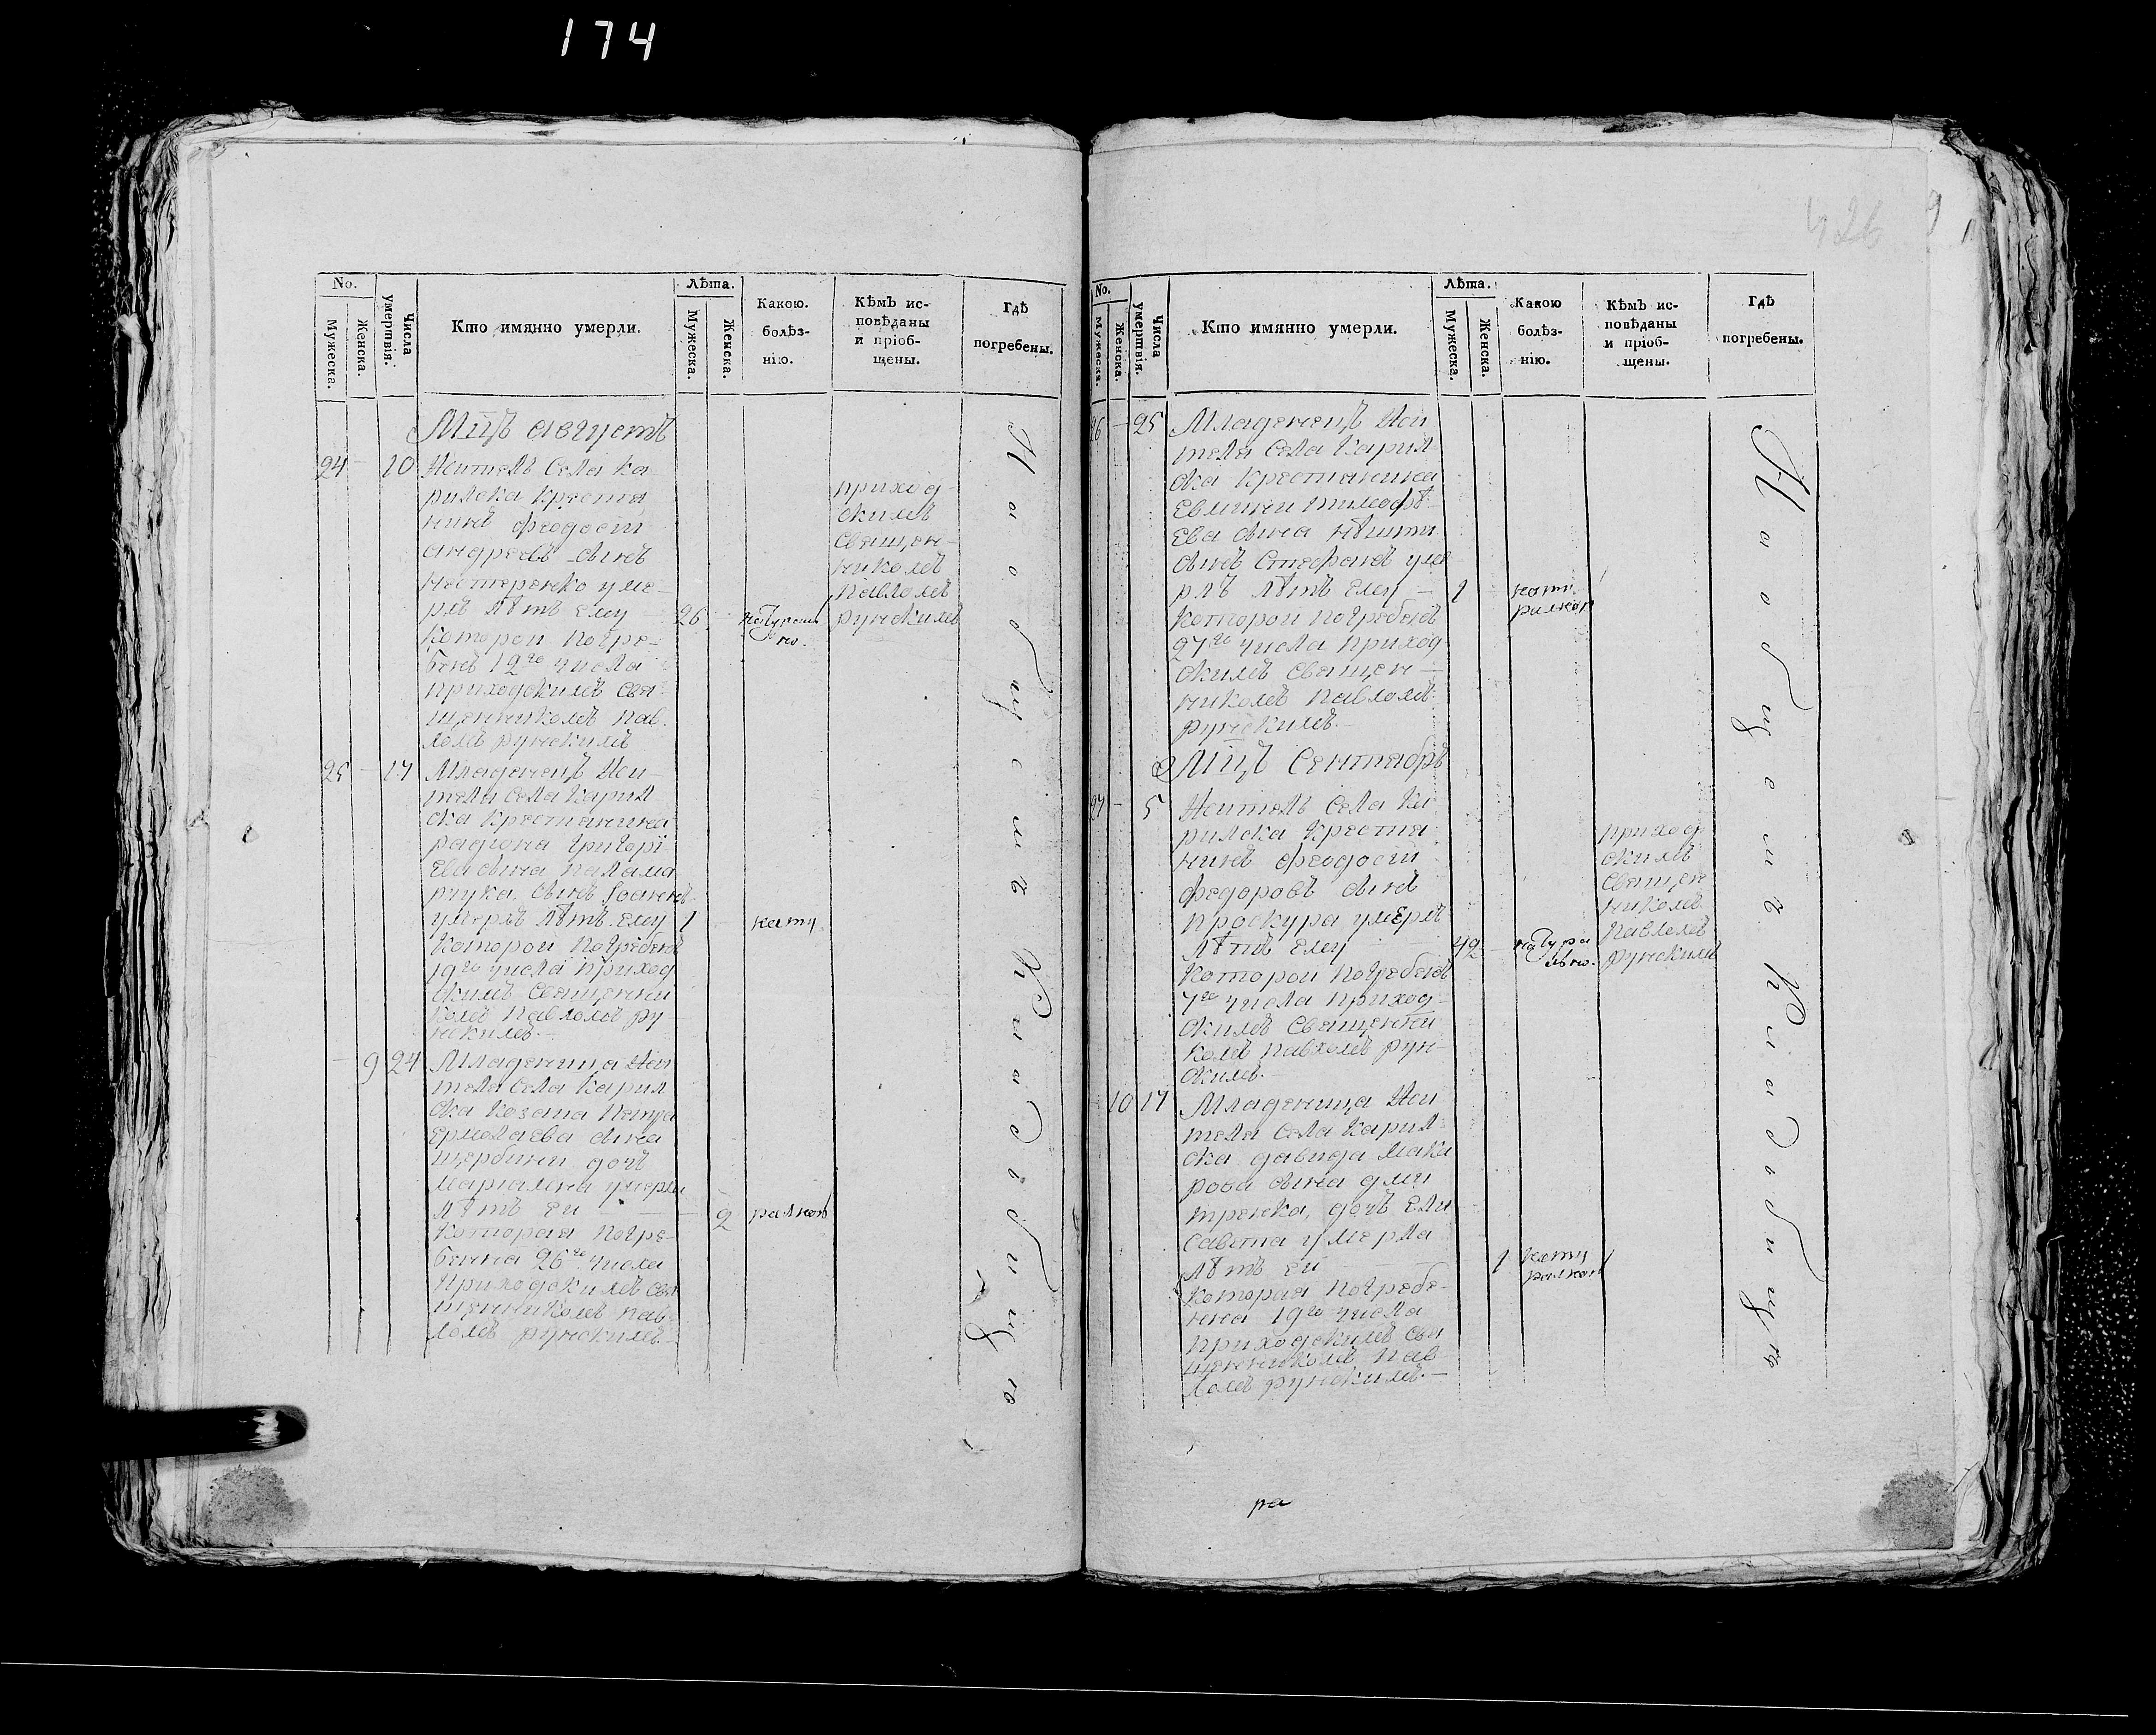 174
426
No.
Мужеска.
Женска.
Числа умертвія.
Кто имянно умерли.
Лѣта.
Мужеска.
Женска.
Какою. болѣз- нію.
Кѣмъ ис-
повѣданы
и пріоб-
щены.
Гдѣ
погребены.
Мцъ августъ
24 – 10 Житель Села Ка
рилска Крестья
нинъ феодосій
андреевъ сынъ
Нестеренко уме-
рлъ лѣтъ Ему 26 натурально.
приход
скимъ
Священ-
никомъ
Павломъ
рунскимъ
Которой погре-
бенъ 12го числа
приходскимъ Свя-
щенникомъ Пав
ломъ рунскимъ
25 – 17 Младенецъ Жи-
теля Села Карил
ска Крестьянина
радиона григорі
Ева сына Палама
рчука. сынъ Іоаннъ
умерлъ лѣтъ Ему 1
Которой погребенъ
19го числа приход
скимъ Священни
комъ Павломъ ру
нскимъ.–
– 9 24 Младеница Жи
теля Села Карил
ска Козака Петра
Ермолаева сына
щербини дочь
мариамна умерла
лѣтъ Ей – 2
Которая погре-
бенна 26го числа
Приходскимъ Свя
щенникомъ Пав-
ломъ рунскимъ.–
На общемъ Кладбищу
No.
Мужеска.
Женска.
Числа умертвія.
Кто имянно умерли.
Лѣта.
Мужеска.
Женска.
Какою
болѣз-
нію.
Кѣмъ ис-
повѣданы
и пріоб-
щены.
Гдѣ
погребены.
26 – 25 Младенецъ Жи
теля Села Карил
ска Крестьянина
тимофѣ-
Ева сына
сынъ Стефанъ уме
рлъ лѣтъ Ему – 1
Которой погребенъ
27го числа приход
скимъ Священ-
никомъ Павломъ
рунскимъ.–
Мцъ Сентябрь
27 – 5 Житель Села Ка
рилска Крестья
нинъ феодосій
федоровъ сынъ
проскура умерлъ
лѣтъ Ему 42 натура
льно.
приход
скимъ
Священ
никомъ
Павломъ
рунскимъ
Которой погребенъ
7го числа приход-
скимъ Священни
комъ Павломъ рун-
скимъ.–
10 17 Младеница Жи
теля Села Карил-
ска давида Мака
рова сына дми
тренка, дочь Ели
савета умерла
лѣтъ Ей 1
Которая погребе-
нна 19го числа
приходскимъ Свя
щенникомъ Пав
ломъ рунскимъ.–
На общемъ Кладбищу
ра